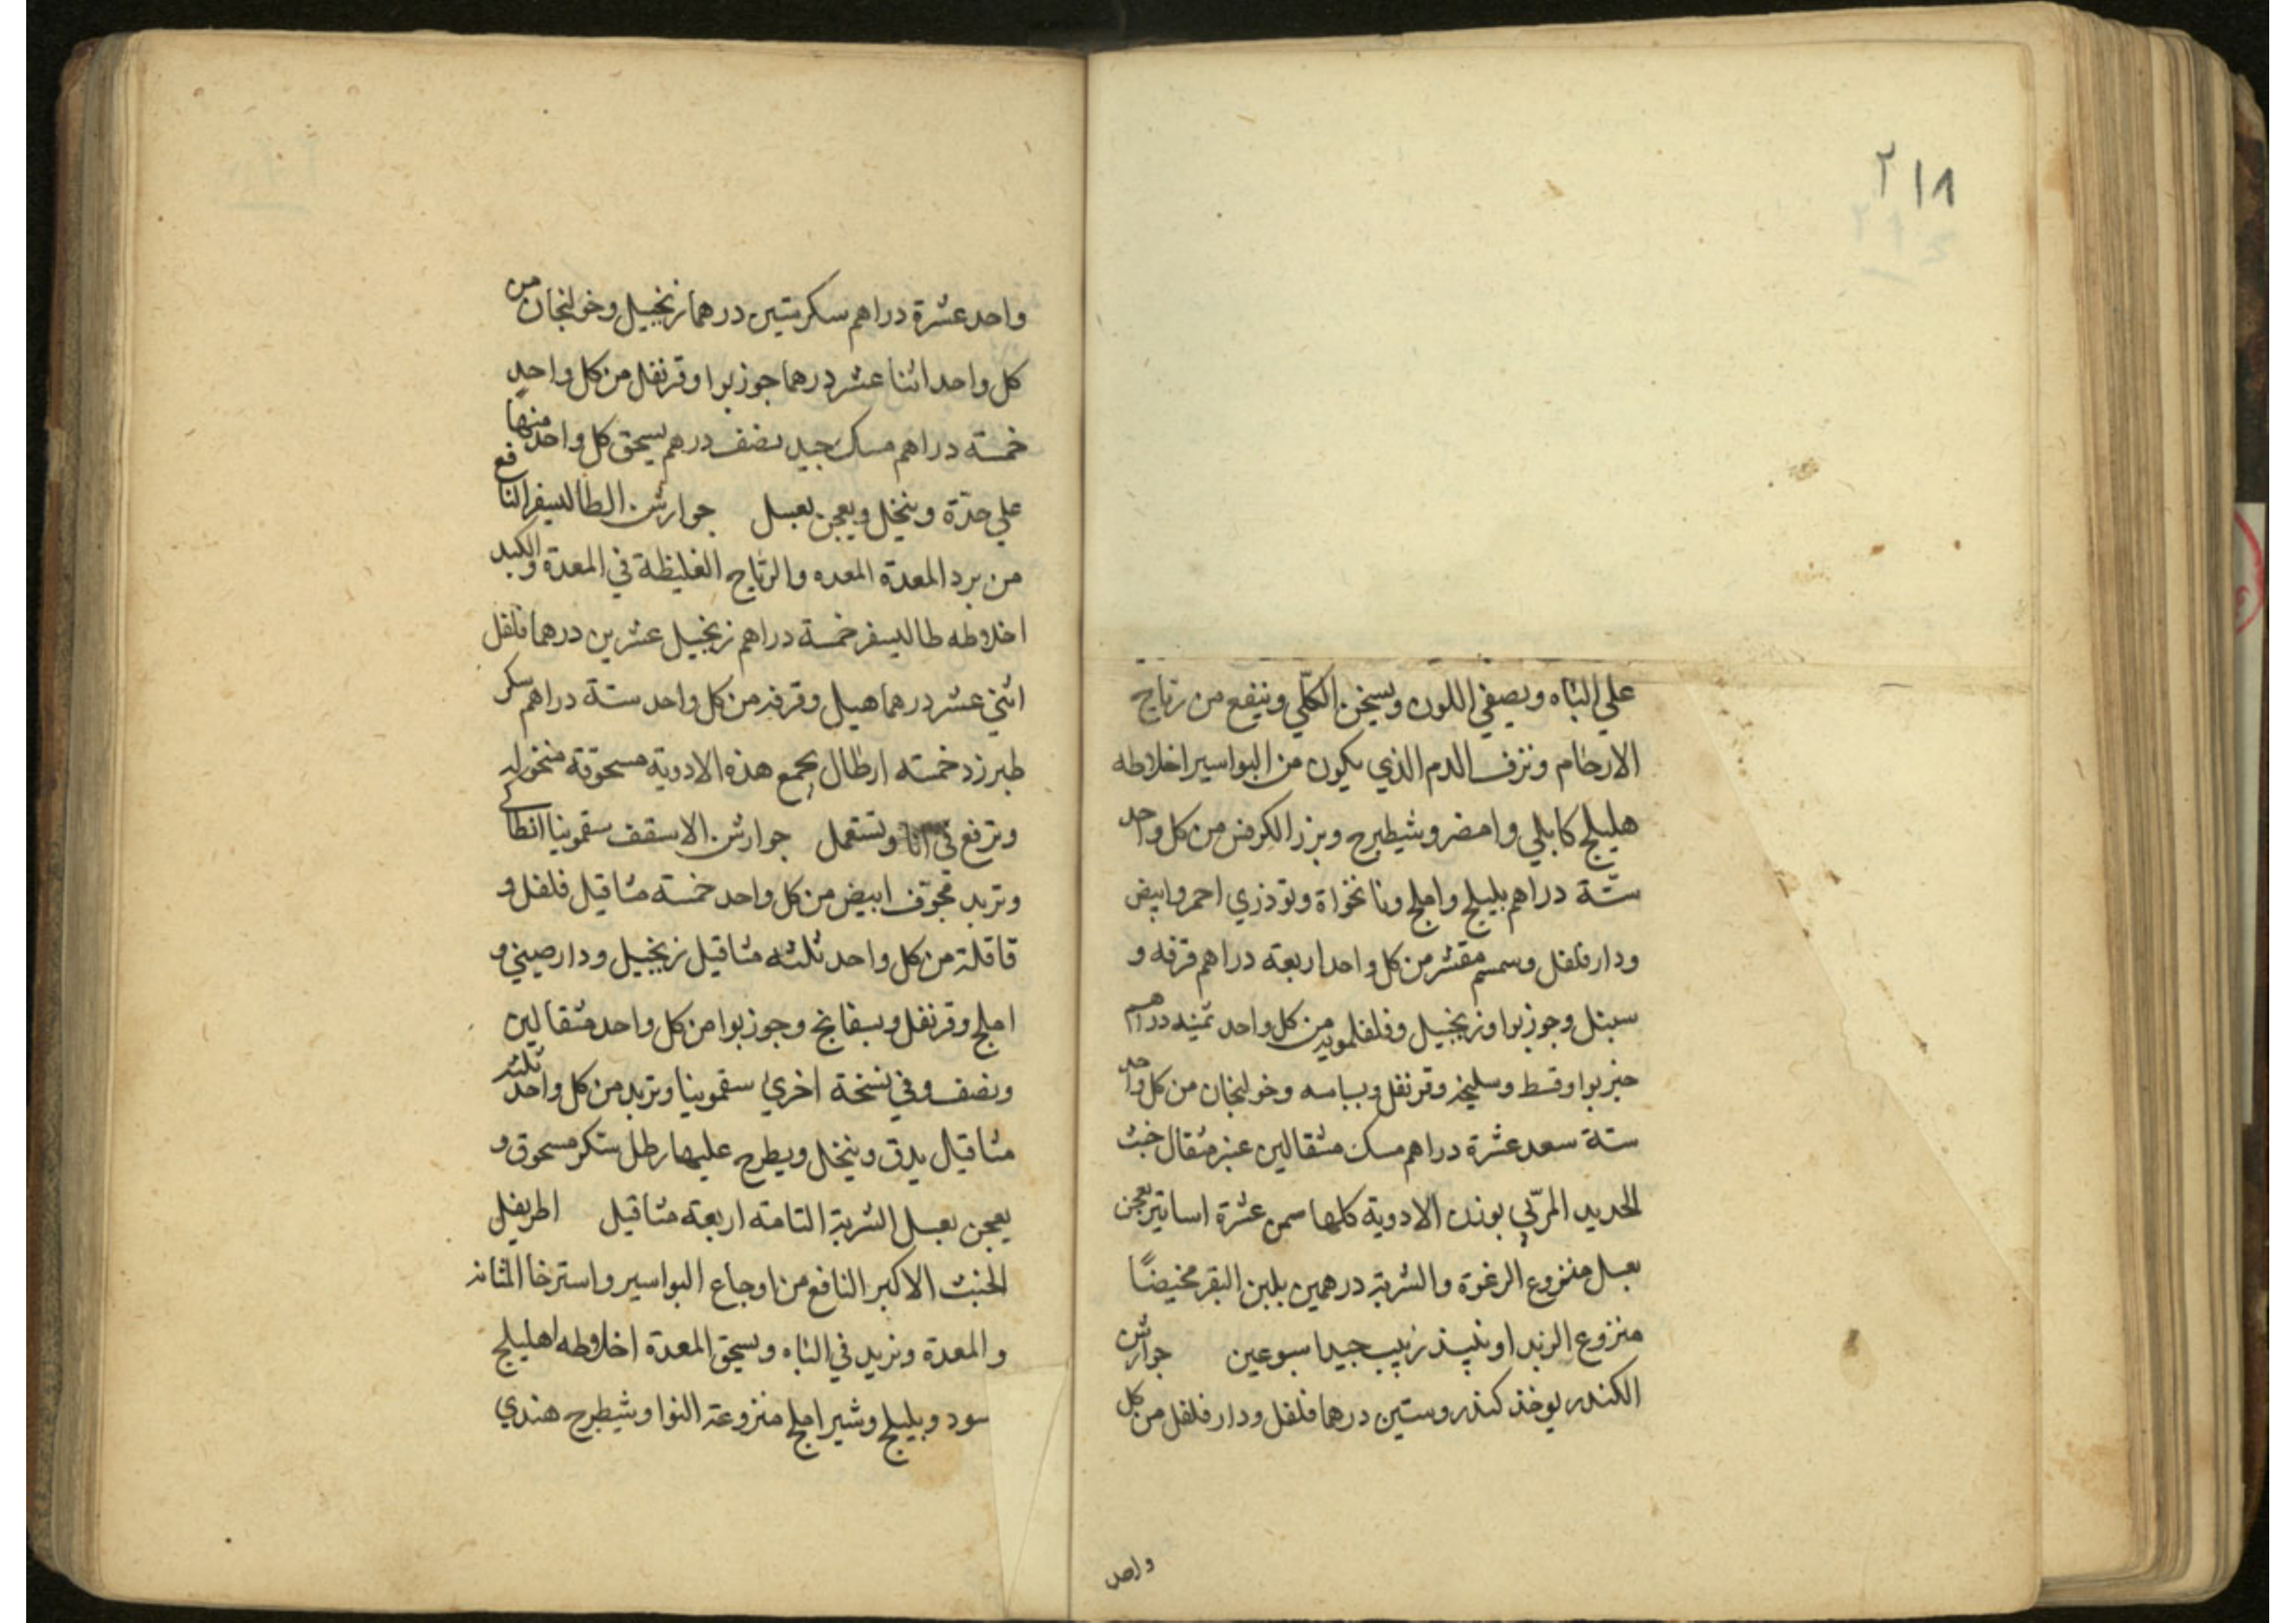 ٢١٨
علي الباه ويصفي اللون ويسخن الكلي وينفع من رياح
الارحام ونزف الدم الذي يكون من البواسير اخلاطه
هليلج كابلي واصفر وشيطرج وبزر الكرفس من كل واحد
ستة دراهم بليلج واملج ونانخواة وتوذري احمر وابيض
ودار فلفل وسمسم مقشر من كل واحد اربعة دراهم قرفه و
سنبل وجوزبوا وزنجبيل وفلفلمويه من كل واحد ثمنيه دراهم
خيربوا وقسط وسليخه وقرنفل وبسباسه وخولنجان من كل واحد
ستة سعد عشرة دراهم مسك مثقالين عنبر مثقال خبث
الحديد المربي بوزن الادوية كلها سمن عشرة اساتير يعجن
بعسل منزوع الرغوة والشربة درهمين بلبن البقر مخيضًا
منزوع الزبد او نبيذ زبيب جيد اسبوعين جوارش
الكندر يوخذ كندر وستين درهما فلفل ودار فلفل من كل
واحد
واحد عشرة دراهم سكر ستين درهما زنجبيل وخولنجان من
كل واحد اثنا عشر درهما جوزبوا وقرنفل من كل واحد
خمسة دراهم مسك جيد نصف درهم يسحق كل واحد منها
علي حدّة وينخل ويعجن بعسل جوارش الطاليسفر النافع
من برد المعدة المعده والرياح الغليظة في المعدة والكبد
اخلاطه طاليسفر خمسة دراهم زنجبيل عشرين درهما فلفل
اثني عشر درهما هيل وقرفه من كل واحد ستة دراهم سكر
طبرزد خمسه ارطال يجمع هذه الادوية مسحوقة منخوله
وترفع في انا وتستعمل جوارش الاسقف سقمونيا انطاكي
وتربد مجوّف ابيض من كل واحد خمسة مثاقيل فلفل و
قاقلة من كل واحد ثلثه مثاقيل زنجبيل ودارصيني و
املج وقرنفل وبسفايج وجوزبوا من كل واحد مثقالين
ونصف وفي نسخة اخري سقمونيا وتربد من كل واحد ثلثه
مثاقيل يدق وينخل ويطرح عليها رطل سكر مسحوق و
يعجن بعسل الشربة التامة اربعة مثاقيل اطريفل
الخبث الاكبر النافع من اوجاع البواسير واسترخا المثانه
والمعدة ويزيد في الباه ويسحق المعدة اخلاطه اهليلج
سود وبليلج وشير املج منزوعة النوا وشيطرج هندي